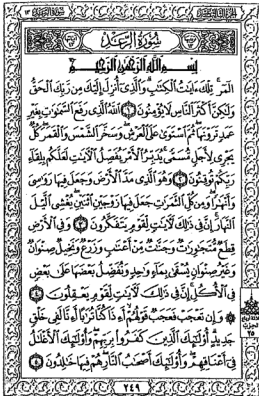 سُورَةُ الرَّعْدِ
بِسْمِ اللَّهِ الرَّحْمَٰنِ الرَّحِيمِ
الٓمٓر ۚ تِلْكَ ءَايَٰتُ الْكِتَٰبِ ۗ وَالَّذِىٓ أُنزِلَ إِلَيْكَ مِن رَّبِّكَ الْحَقُّ
وَلَٰكِنَّ أَكْثَرَ النَّاسِ لَا يُؤْمِنُونَ ١ اللَّهُ الَّذِى رَفَعَ السَّمَٰوَٰتِ بِغَيْرِ
عَمَدٍ تَرَوْنَهَا ۖ ثُمَّ اسْتَوَىٰ عَلَى الْعَرْشِ ۖ وَسَخَّرَ الشَّمْسَ وَالْقَمَرَ ۖ كُلٌّ
يَجْرِى لِأَجَلٍ مُّسَمًّى ۚ يُدَبِّرُ الْأَمْرَ يُفَصِّلُ الْءَايَٰتِ لَعَلَّكُم بِلِقَآءِ
رَبِّكُمْ تُوقِنُونَ ٢ وَهُوَ الَّذِى مَدَّ الْأَرْضَ وَجَعَلَ فِيهَا رَوَٰسِىَ
وَأَنْهَٰرًا ۖ وَمِن كُلِّ الثَّمَرَٰتِ جَعَلَ فِيهَا زَوْجَيْنِ اثْنَيْنِ ۖ يُغْشِى الَّيْلَ
النَّهَارَ ۚ إِنَّ فِى ذَٰلِكَ لَءَايَٰتٍ لِّقَوْمٍ يَتَفَكَّرُونَ ٣ وَفِى الْأَرْضِ
قِطَعٌ مُّتَجَٰوِرَٰتٌ وَجَنَّٰتٌ مِّنْ أَعْنَٰبٍ وَزَرْعٌ وَنَخِيلٌ صِنْوَانٌ
وَغَيْرُ صِنْوَانٍ يُسْقَىٰ بِمَآءٍ وَٰحِدٍ وَنُفَضِّلُ بَعْضَهَا عَلَىٰ بَعْضٍ
فِى الْأُكُلِ ۚ إِنَّ فِى ذَٰلِكَ لَءَايَٰتٍ لِّقَوْمٍ يَعْقِلُونَ ٤
۞ وَإِن تَعْجَبْ فَعَجَبٌ قَوْلُهُمْ أَءِذَا كُنَّا تُرَٰبًا أَءِنَّا لَفِى خَلْقٍ
جَدِيدٍ ۗ أُو۟لَٰٓئِكَ الَّذِينَ كَفَرُوا۟ بِرَبِّهِمْ ۖ وَأُو۟لَٰٓئِكَ الْأَغْلَٰلُ
فِىٓ أَعْنَاقِهِمْ ۖ وَأُو۟لَٰٓئِكَ أَصْحَٰبُ النَّارِ ۖ هُمْ فِيهَا خَٰلِدُونَ ٥
٢٤٩